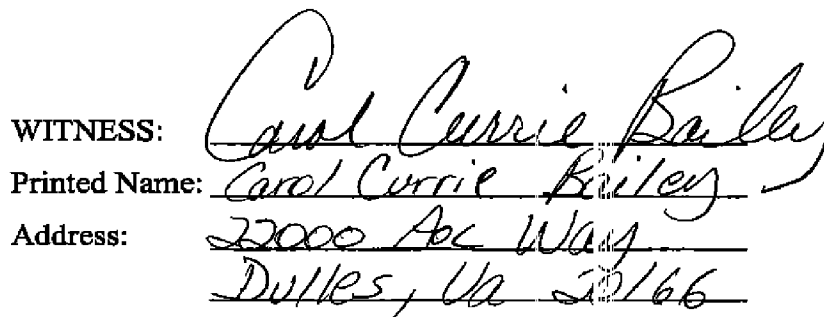 WITNESS: Carol Currie Bailey
Printed Name: Carol Currie Bailey
Address: 22000 AOC Way
Dulles, Va 20166